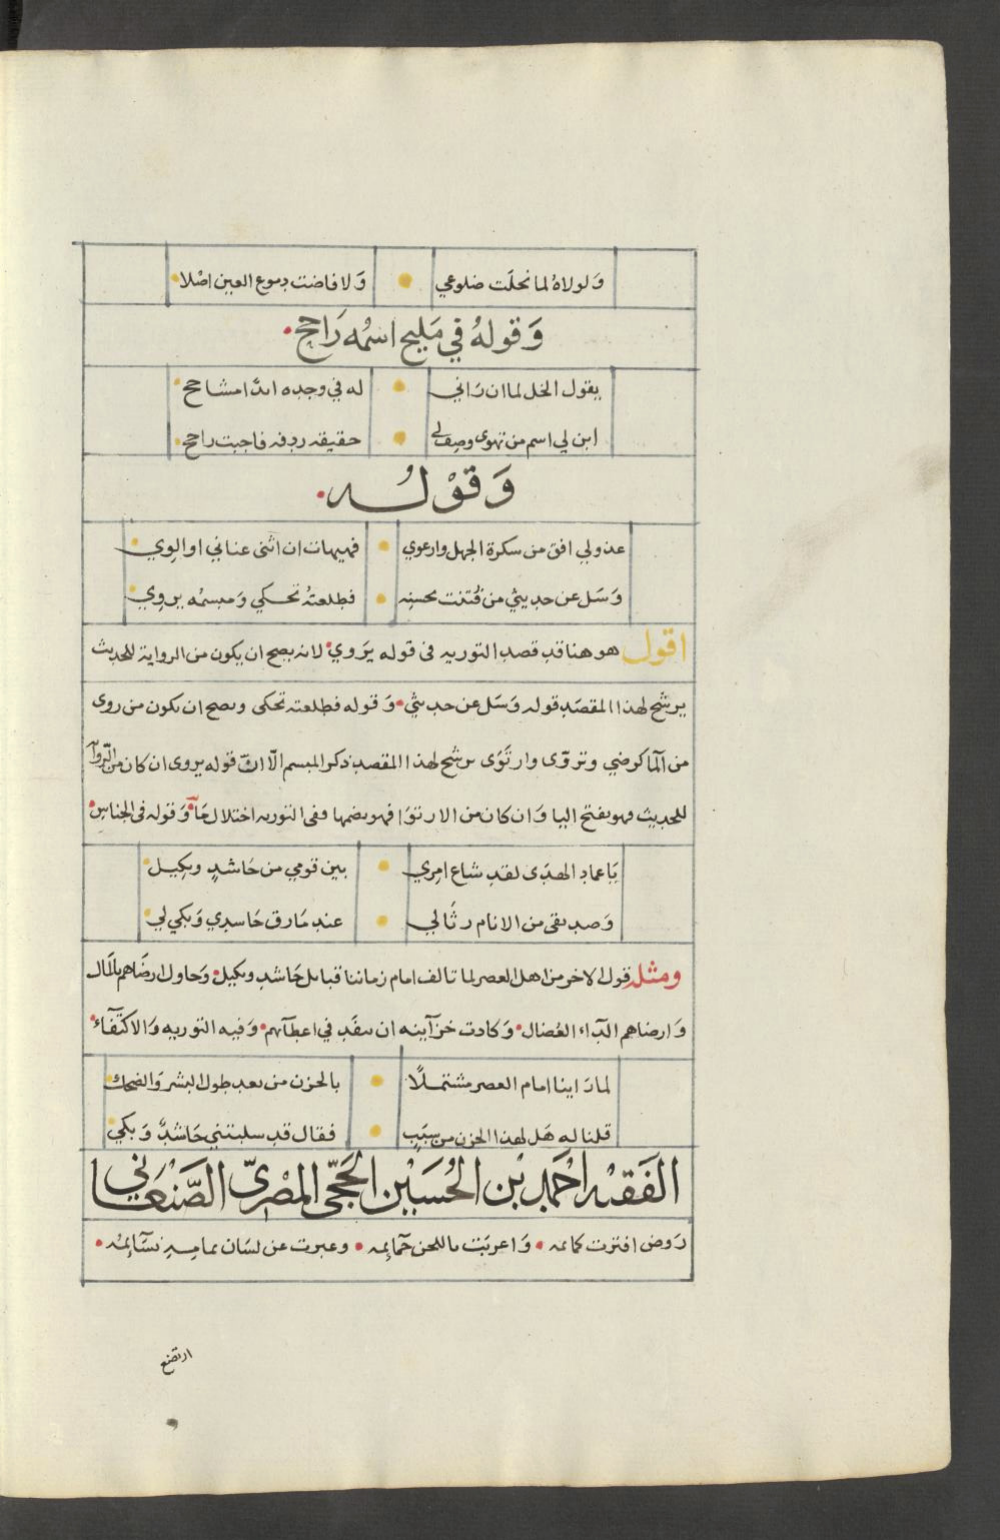 وَلولاهُ لما نحلَت ضلوعي • وَلا فاضت دموع العين اصْلا
وَقولهُ في مَليح اسمُه رَاجح
يقول الخل لما ان رَاني • له في وجده ابدًا مشاحح
ابن لي اسم من تهوى وصِف لي • حقيقة ردفه فاجبت راجح
وَقوْلُه
عذولي افق من سكرة الجهل وارعوي • فهيهات ان اثنى عناني او الوِي
وَسَل عن حديثي من فُتنت بحسنِه • فطلعتهُ تحكي وَمبسمُه يروِي
اقول هو هنا قد قصد التوريه فى قوله يَروي لانه يصح ان يكون من الرواية للحديث
يرشح لهذا المقصَد قوله وَسَل عن حديثي وَقوله فطلعته تحكى ويصح ان يكون من روى
من المآ كرضي وتروّى وارتَوَى يرشح لهذا المقصد ذكر المبسم الّا انّ قوله يروى ان كان من الرّوايه
للحديث فهو بفتح اليا وَان كان من الارتوَا فهو بضمها وفى التوريه اختلال مَا وَقوله فى الجناس
يَا عماد الهدَى لقد شاع امرِي • بين قومي من حَاشدٍ وبكِيل
وَصديقى من الانام رثَا لي • عند مَا رق حَاسدي وَبكي لي
ومثله قول الاخر من اهل العصر لما تالف امام زماننا قبائل حَاشد وبكيل وَحاول ارضَاهم بالمَال
وَارضاهم الدَّاء العُضال وَكادت خزآينه ان تنفَد في اعطآئهم وَفيه التوريه وَالاكتفَاء
لما رَاينا امام العصر مشتملًا • بالحزن من بعد طول البشر وَالضحك
قلنا له هَل لهذا الحزن من سبَبٍ • فقال قد سلبتني حَاشدٌ وَبكي
الفَقيه احْمَد بْن الحُسَيْن الحَجّى المصْرىّ الصَّنْعَانى
رَوض افترت كمائمه • وَاعربَت باللحن حمَايمه • وعبرت عن لسَان نسَآئمُه